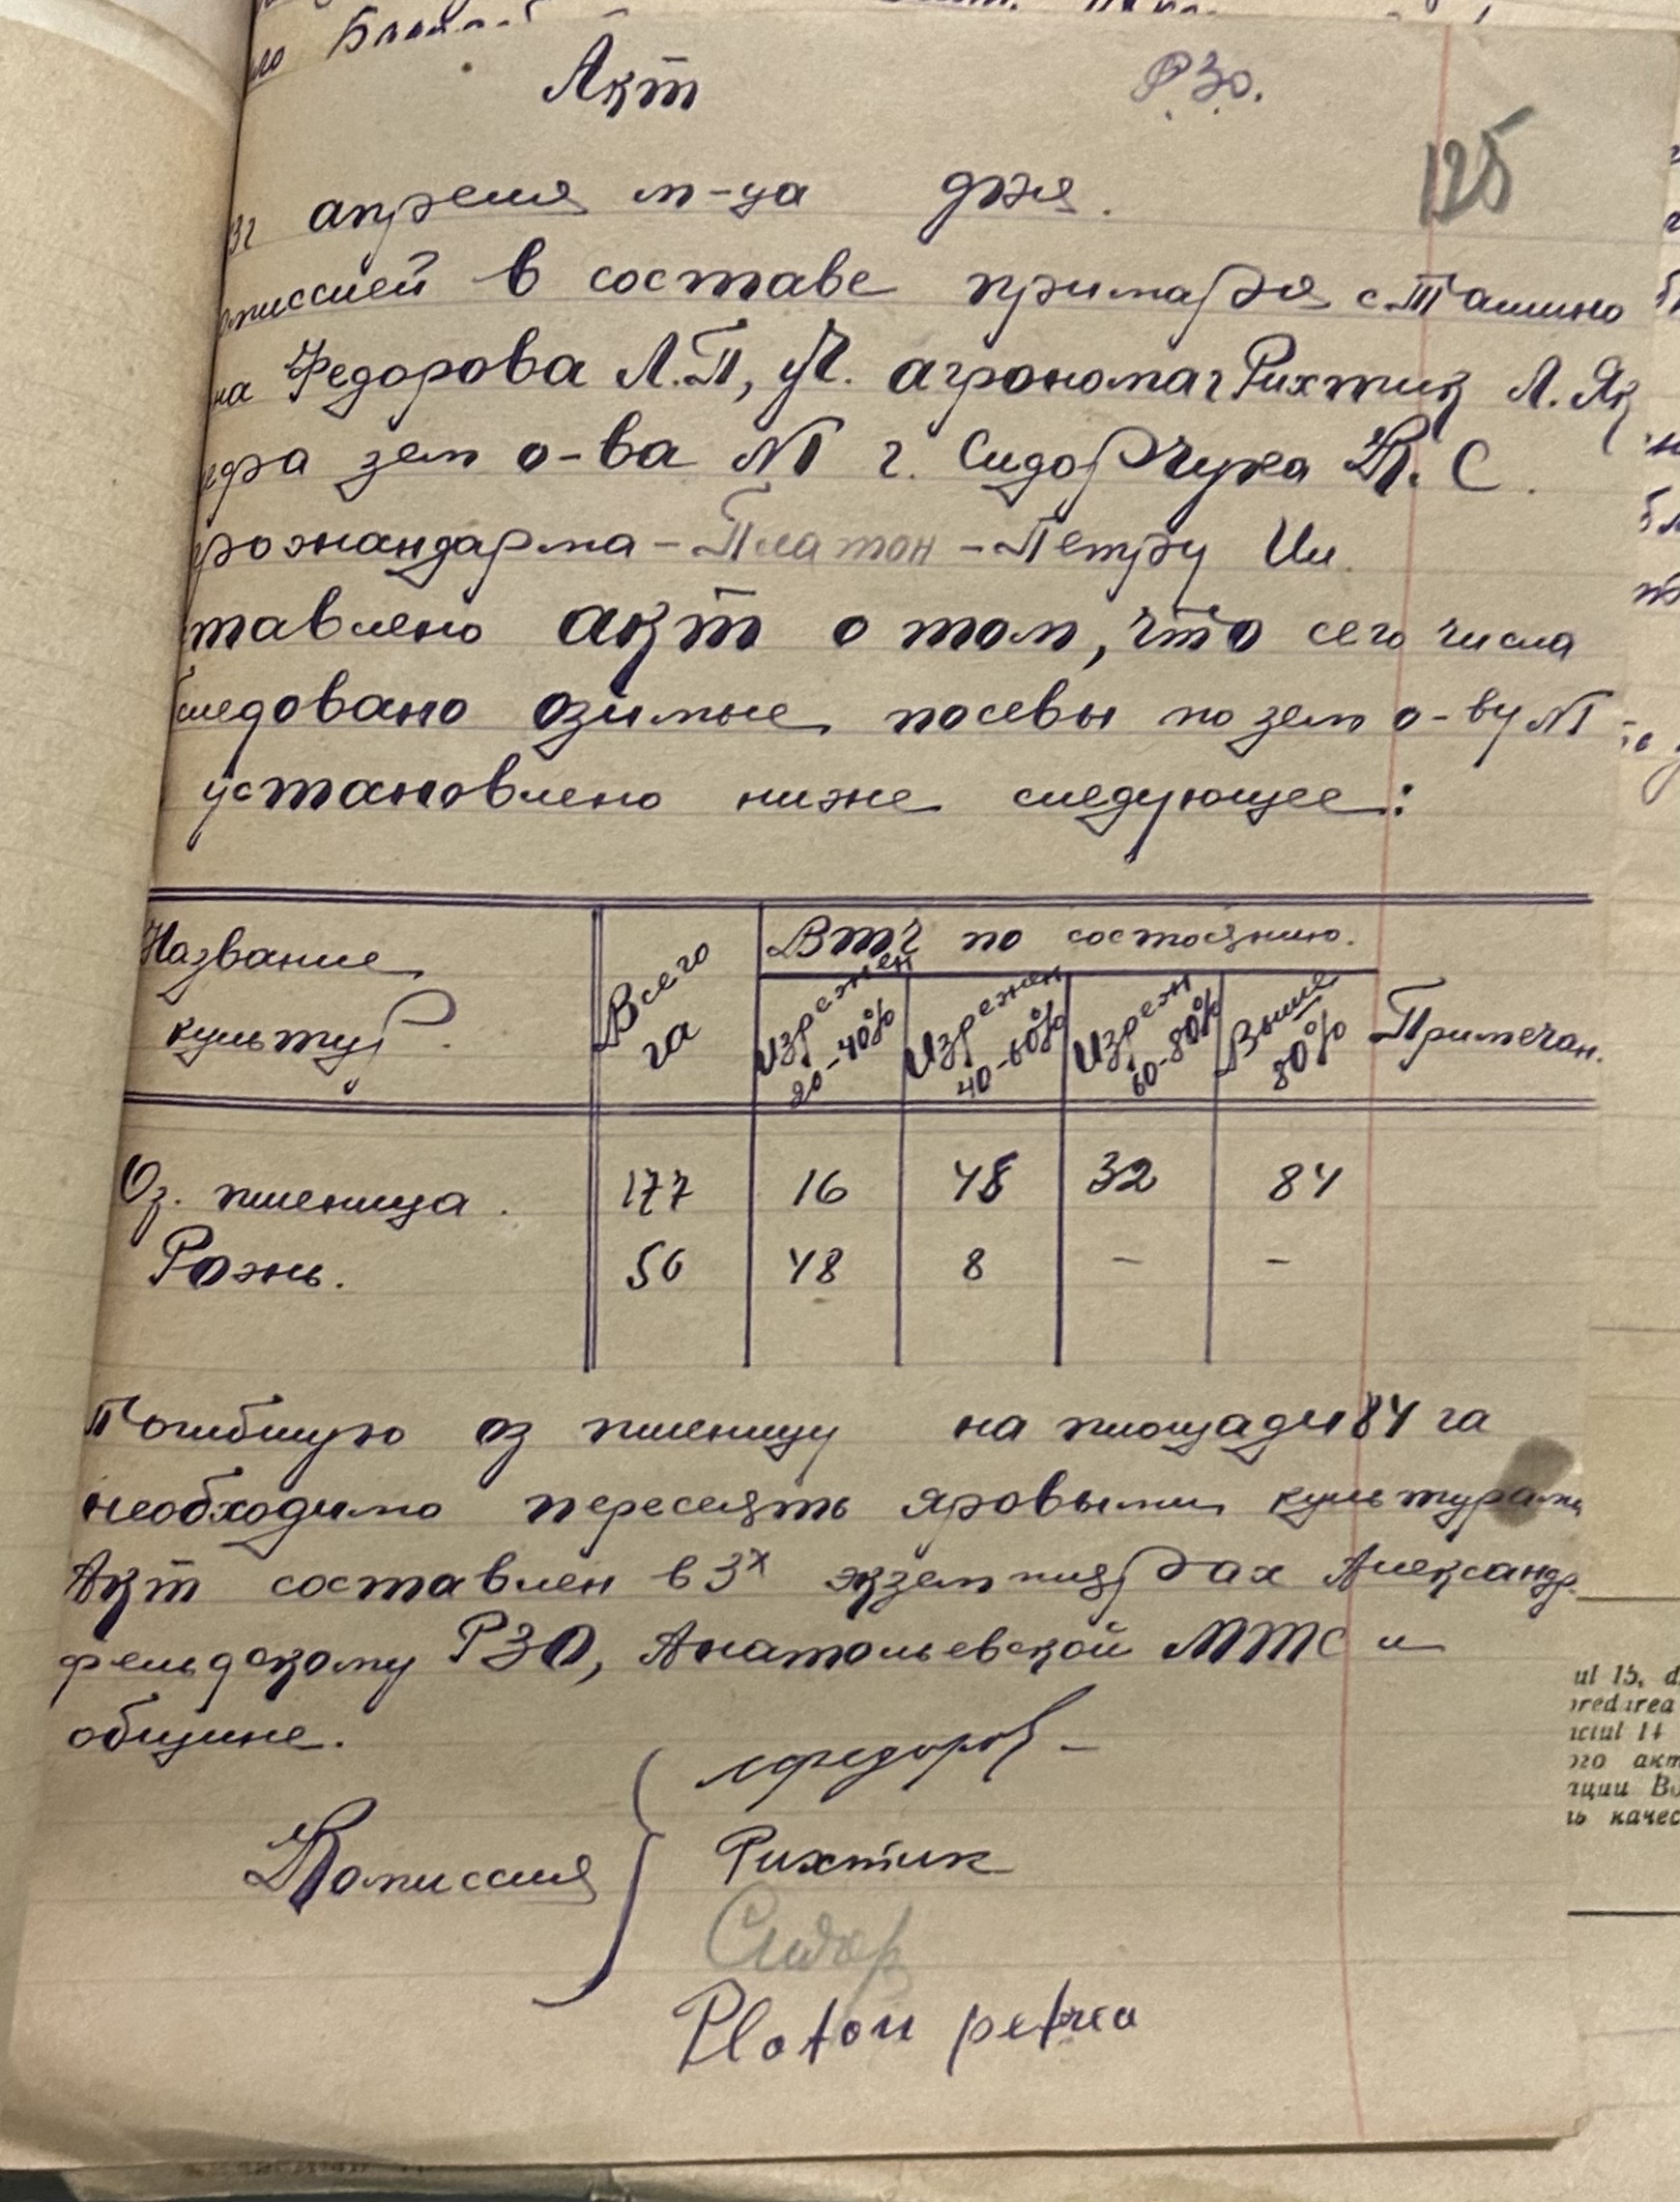 Акт
РЗО.
125
апреля м-ца дня.
омиссией в составе примаря с. Ташино
на Федорова Л.П, уч. агронома г Рихтик Л. Як
зем о-ва № г. Сидорчука К. С.
рожандарма - Платон - Петру Ил.
ставлено акт о том, что сего числа
бследовано озимые посевы по зем о-ву №
установлено ниже следующее:
Название культур. Всего га В т.ч по состоянию. Примечан.
Изрежен 20-40% Изрежен 40-60% Изреж 60-80% Выше 80%
Оз. пшеница. 177 16 45 32 84
Рожь. 56 48 8 - -
Погибшую оз пшеницу на площади 84 га
необходимо пересеять яровыми культурами
Акт составлен в 3х экземплярах Александр-
фельдскому РЗО, Анатольевской МТС и
общине.
Комиссия
лфедоров
Рихтик
Сидор
Platon petrea